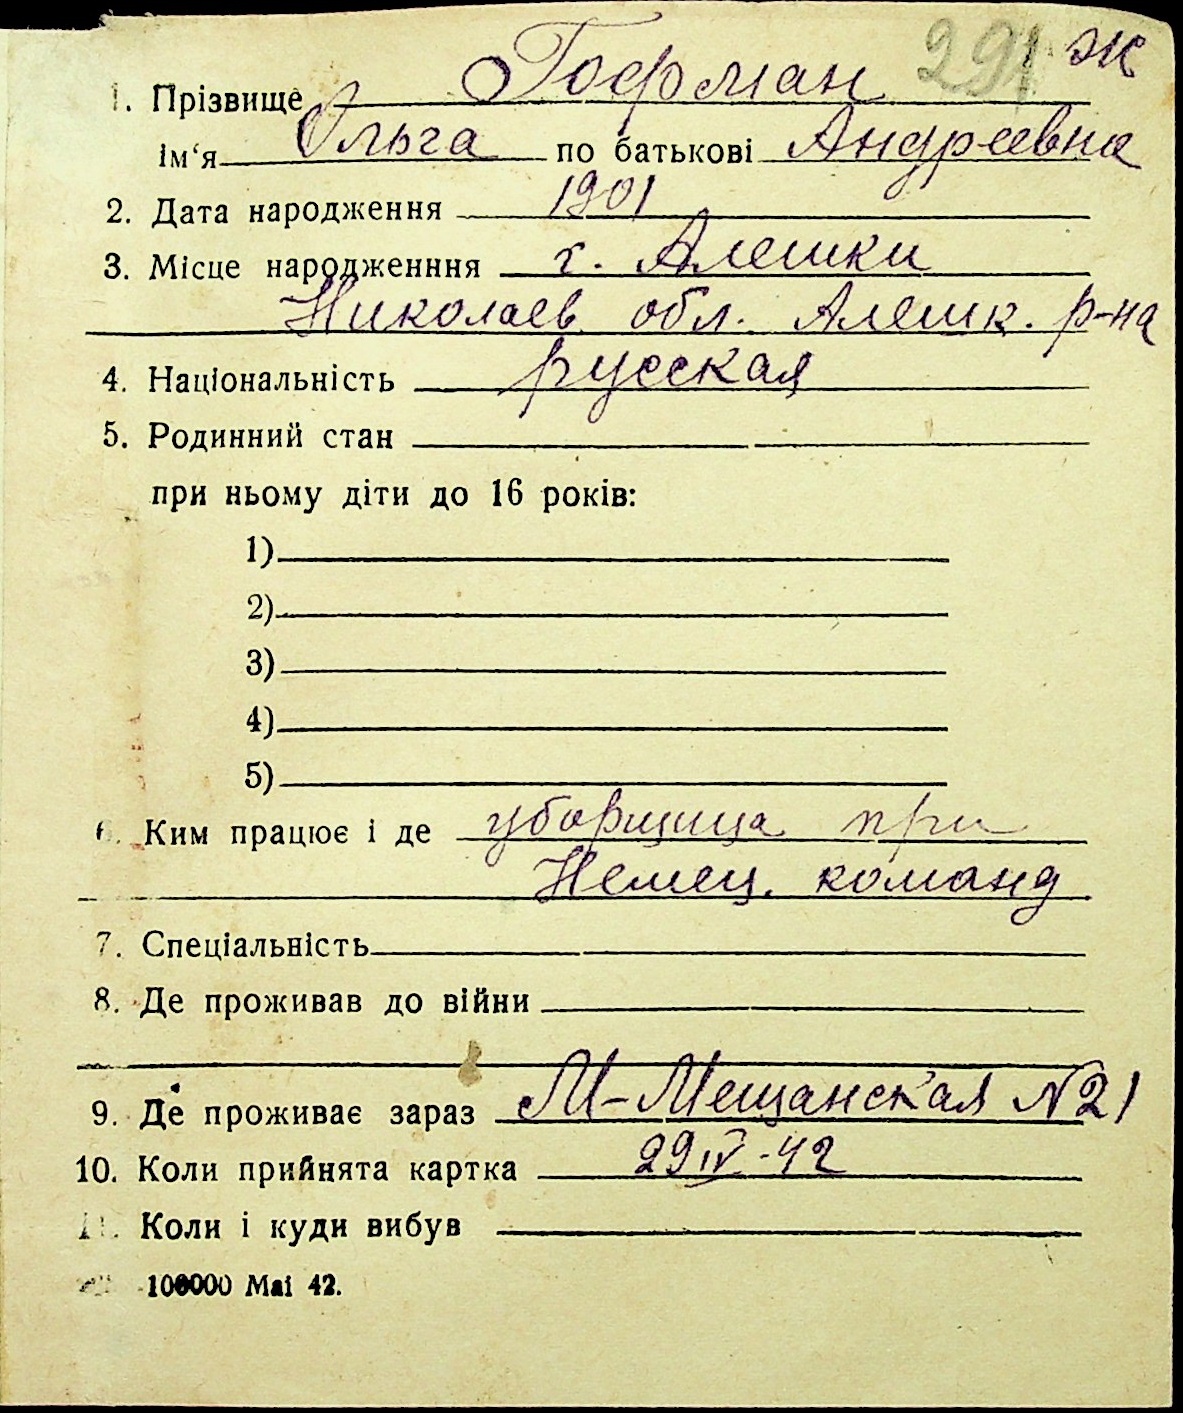 291 ж
1. Прізвище Гофман
Ім‘я Ольга по батькові Андреевна
2. Дата народження 1901
3. Місце народженння г. Алешки
Николаев обл. Алешк. р-на
4. Національність русская
5. Родинний стан
при ньому діти до 16 років:
1)
2)
3)
4)
5)
6. Ким працює і де уборщица при
Немец. команд
7. Спеціальність
8. Де проживав до війни
9. Де проживає зараз М-Мещанская №21
10. Коли прийнята картка 29 IV-42
11. Коли і куди вибув
100000 Маі 42.